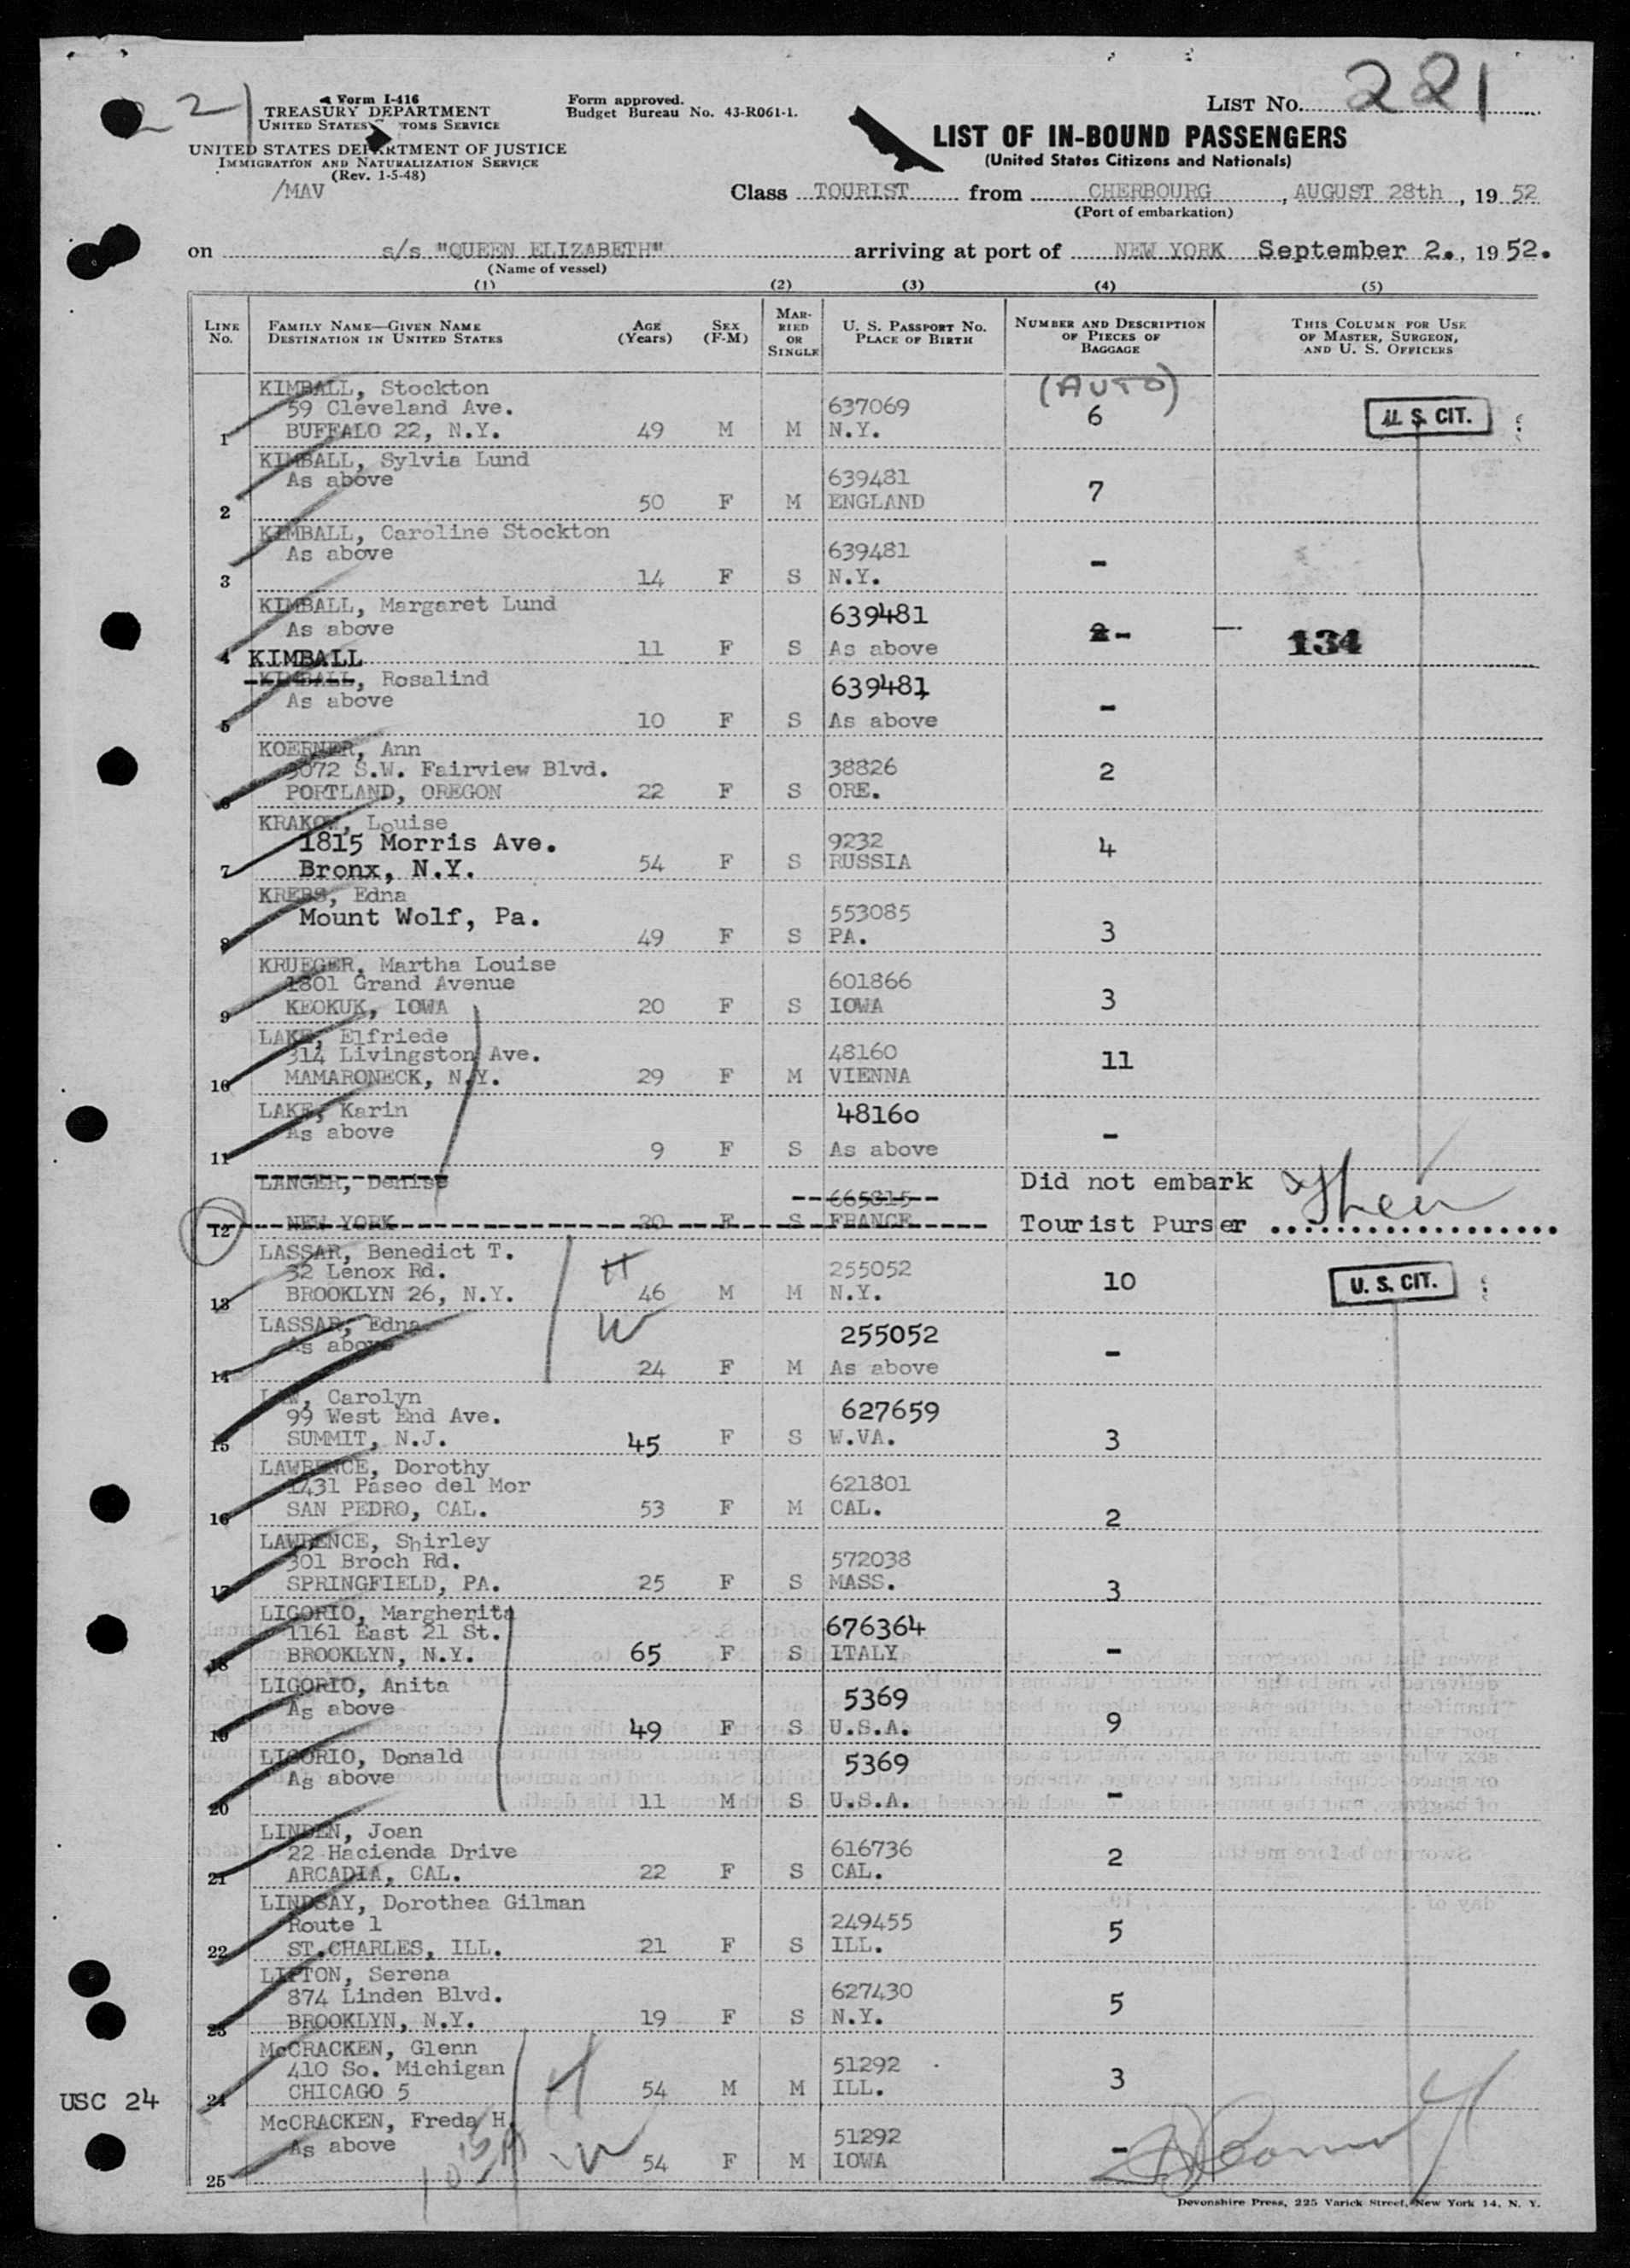 221
Form I-416
TREASURY DEPARTMENT
UNITED STATES TOMS SERVICE
UNITED STATES DEPARTMENT OF JUSTICE
IMMIGRATION AND NATURALIZATION SERVICE
(Rev. 1-5-48)
/MAV
Form approved.
Budget Bureau No. 43-R061-1.
LIST No. 221
LIST OF IN-BOUND PASSENGERS
(United States Citizens and Nationals)
Class TOURIST from CHERBOURG, AUGUST 28th, 19 52
(Port of embarkation)
on s/s "QUEEN ELIZABETH" arriving at port of NEW YORK September 2., 19 52.
(Name of vessel)
(1) (2) (3) (4) (5)
LINE No. FAMILY NAME—GIVEN NAME DESTINATION IN UNITED STATES AGE (Years) SEX (F-M) MARRIED OR SINGLE U. S. PASSPORT No. PLACE OF BIRTH NUMBER AND DESCRIPTION OF PIECES OF BAGGAGE THIS COLUMN FOR USE OF MASTER, SURGEON, AND U. S. OFFICERS
KIMBALL, Stockton (AUTO)
59 Cleveland Ave. 637069 6 U. S. CIT.
1 BUFFALO 22, N.Y. 49 M M N.Y.
KIMBALL, Sylvia Lund
As above 639481 7
2 50 F M ENGLAND
KIMBALL, Caroline Stockton
As above 639481 -
3 14 F S N.Y.
KIMBALL, Margaret Lund 639481
As above 2 - 134
4 11 F S As above
KIMBALL
KIMBALL, Rosalind 639481
As above -
5 10 F S As above
KOERNER, Ann
3072 S.W. Fairview Blvd. 38826 2
6 PORTLAND, OREGON 22 F S ORE.
KRAKOW, Louise
1815 Morris Ave. 9232 4
7 Bronx, N.Y. 54 F S RUSSIA
KREBS, Edna
Mount Wolf, Pa. 553085
8 49 F S PA. 3
KRUEGER, Martha Louise
1801 Grand Avenue 601866 3
9 KEOKUK, IOWA 20 F S IOWA
LAKE, Elfriede
314 Livingston Ave. 48160 11
10 MAMARONECK, N.Y. 29 F M VIENNA
LAKE, Karin 48160
As above -
11 9 F S As above
LANGER, Denise 665815 Did not embark
12 NEW YORK 20 F S FRANCE Tourist Purser
LASSAR, Benedict T. H
32 Lenox Rd. 255052 10 U. S. CIT.
13 BROOKLYN 26, N.Y. 46 M M N.Y.
LASSAR, Edna W 255052
As above -
14 24 F M As above
LAW, Carolyn
99 West End Ave. 627659
15 SUMMIT, N.J. 45 F S W.VA. 3
LAWRENCE, Dorothy
1431 Paseo del Mor 621801
16 SAN PEDRO, CAL. 53 F M CAL. 2
LAWRENCE, Shirley
301 Broch Rd. 572038
17 SPRINGFIELD, PA. 25 F S MASS. 3
LIGORIO, Margherita
1161 East 21 St. 676364
18 BROOKLYN, N.Y. 65 F S ITALY -
LIGORIO, Anita 5369
As above 9
19 49 F S U.S.A.
LIGORIO, Donald 5369
As above -
20 11 M S U.S.A.
LINDEN, Joan
22 Hacienda Drive 616736 2
21 ARCADIA, CAL. 22 F S CAL.
LINDSAY, Dorothea Gilman
Route 1 249455 5
22 ST.CHARLES, ILL. 21 F S ILL.
LIPTON, Serena
874 Linden Blvd. 627430 5
23 BROOKLYN, N.Y. 19 F S N.Y.
McCRACKEN, Glenn H
410 So. Michigan 51292 3
USC 24
24 CHICAGO 5 54 M M ILL.
McCRACKEN, Freda H. W
As above 51292 -
25 54 F M IOWA
Devonshire Press, 225 Varick Street, New York 14, N. Y.